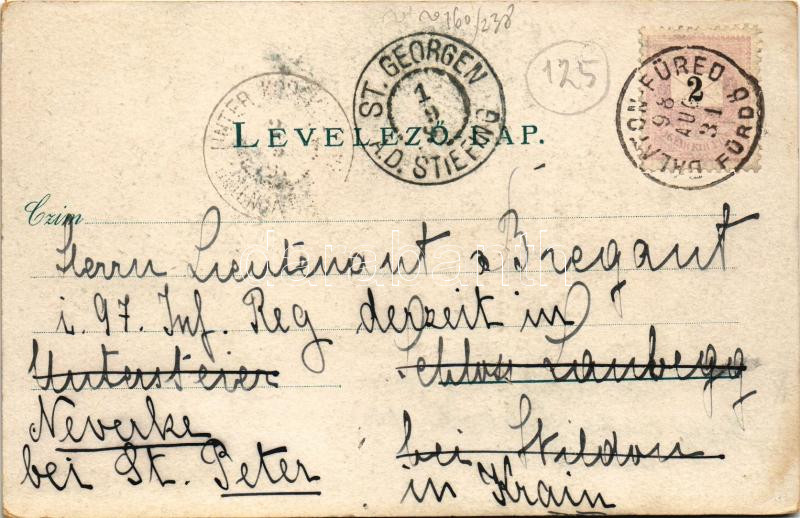 160/238
125
ST. GEORGEN
A.D. STIEFING
BALATON-FÜRED
FÜRDŐ
98
AUG
31
2
LEVELEZŐ-LAP.
Czim
Herrn Lieutenant v Bregant
i. 97. Inf. Reg derzeit in
Untersteier Schloss
Neverke bei Wildon
bei St. Peter in Krain